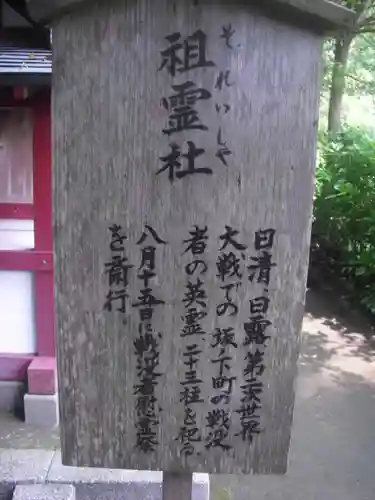 祖霊社
それいしゃ
日清・日露・第二次世界
大戦での坂ノ下町の戦没
者の英霊二十三柱を祀る
八月十五日に戦没者慰霊祭
を斎行。